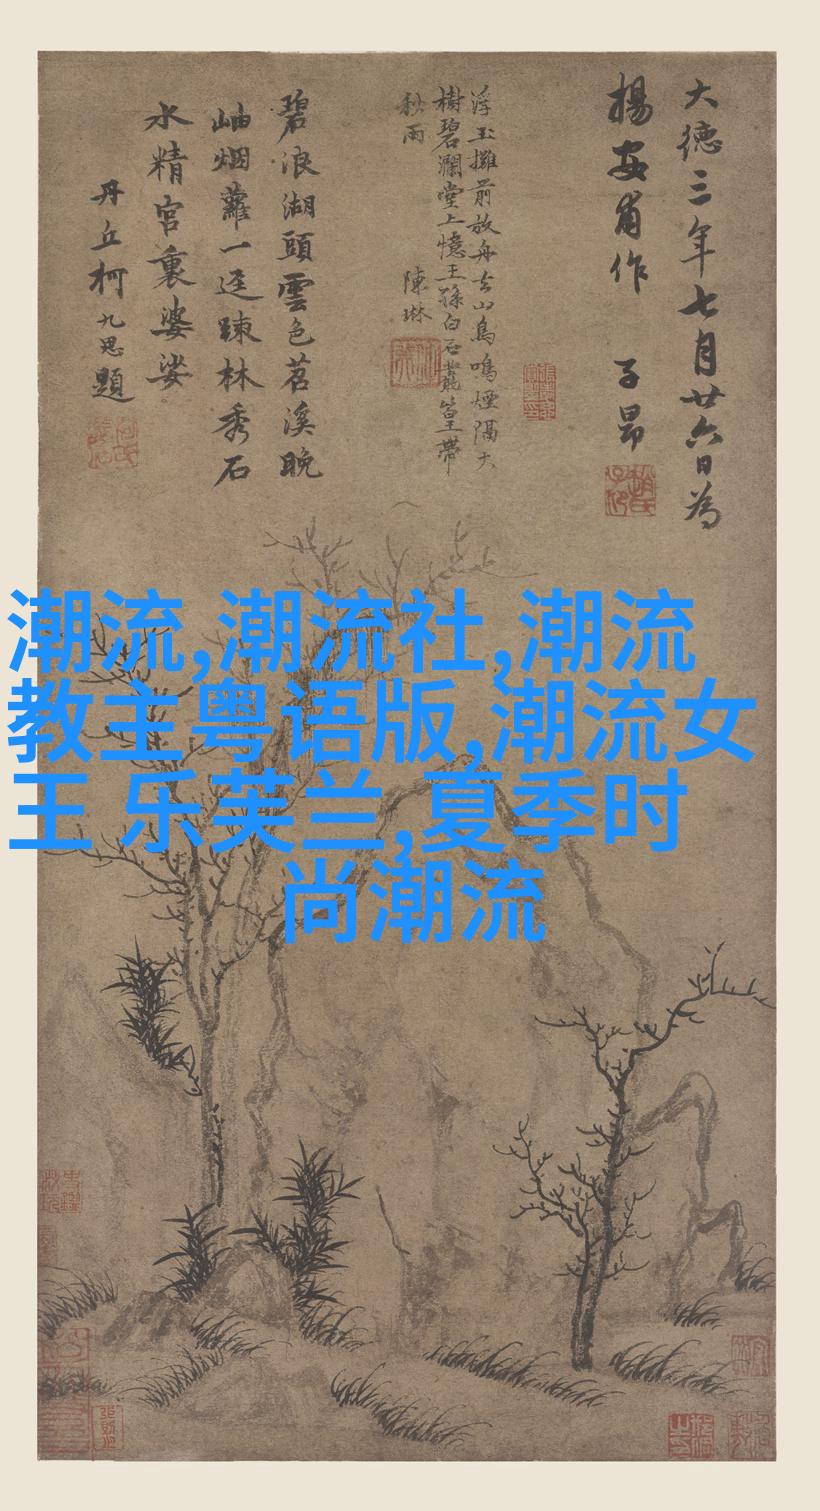 大德三年七月廿六日為
楊安甫作 子昂
浮玉攤前放舟去山鳥鳴煙隔大
樹碧瀾堂上憶王孫白石叢篁帶
秋雨 陳琳
碧浪湖頭雲色苕溪晚
岫烟蘿一迳踈林秀石
水精宮裏婆娑
丹丘柯九思題
潮流,潮流社,潮流
教主粤语版,潮流女
王 乐芙兰,夏季时
尚潮流